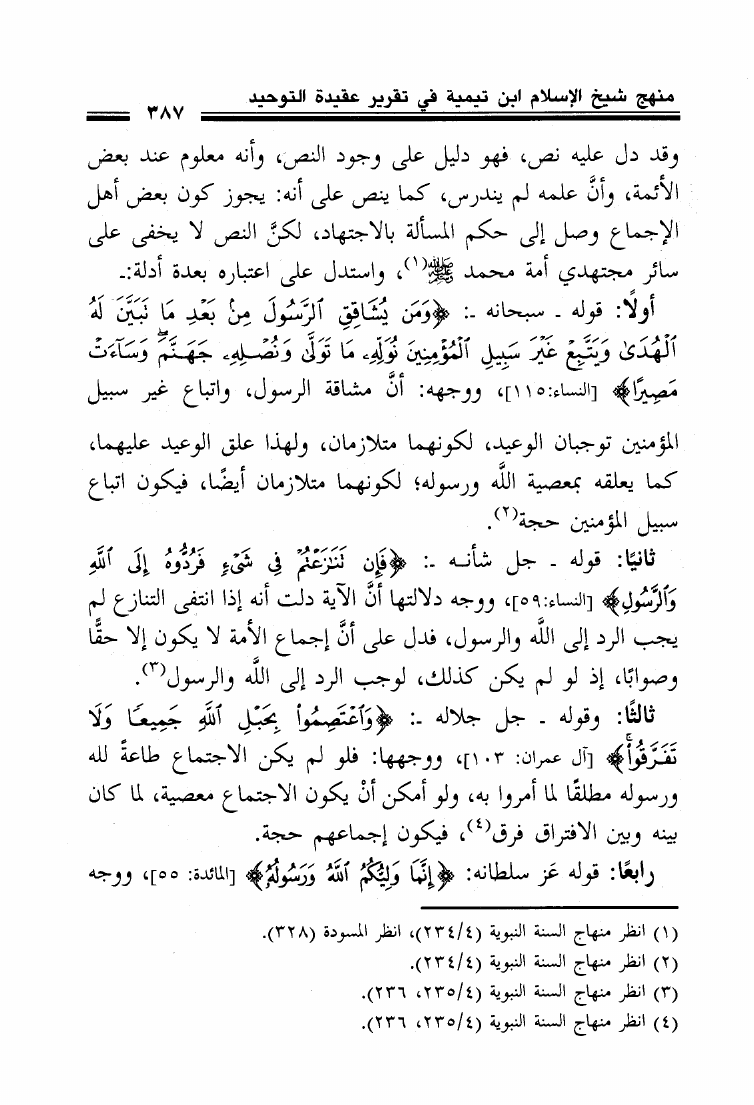 منهج شيخ الإسلام ابن تيمية في تقرير عقيدة التوحيد
٣٨٧
وقد دل عليه نص، فهو دليل على وجود النص، وأنه معلوم عند بعض
الأئمة، وأنَّ علمه لم يندرس، كما ينص على أنه: يجوز كون بعض أهل
الإجماع وصل إلى حكم المسألة بالاجتهاد، لكنَّ النص لا يخفى على
سائر مجتهدي أمة محمد ﷺ(١)، واستدل على اعتباره بعدة أدلة:ـ
أولًا: قوله ـ سبحانه ـ: ﴿وَمَن يُشَاقِقِ ٱلرَّسُولَ مِنۢ بَعْدِ مَا تَبَيَّنَ لَهُ
ٱلْهُدَىٰ وَيَتَّبِعْ غَيْرَ سَبِيلِ ٱلْمُؤْمِنِينَ نُوَلِّهِۦ مَا تَوَلَّىٰ وَنُصْلِهِۦ جَهَنَّمَۖ وَسَآءَتْ
مَصِيرًا﴾ [النساء:١١٥]، ووجهه: أنَّ مشاقة الرسول، واتباع غير سبيل
المؤمنين توجبان الوعيد، لكونهما متلازمان، ولهذا علق الوعيد عليهما،
كما يعلقه بمعصية اللَّه ورسوله؛ لكونهما متلازمان أيضًا، فيكون اتباع
سبيل المؤمنين حجة(٢).
ثانيًا: قوله ـ جل شأنـه ـ: ﴿فَإِن تَنَٰزَعْتُمْ فِى شَىْءٍ فَرُدُّوهُ إِلَى ٱللَّهِ
وَٱلرَّسُولِ﴾ [النساء:٥٩]، ووجه دلالتها أنَّ الآية دلت أنه إذا انتفى التنازع لم
يجب الرد إلى اللَّه والرسول، فدل على أنَّ إجماع الأمة لا يكون إلا حقًّا
وصوابًا، إذ لو لم يكن كذلك، لوجب الرد إلى اللَّه والرسول(٣).
ثالثًا: وقوله ـ جل جلاله ـ: ﴿وَٱعْتَصِمُوا۟ بِحَبْلِ ٱللَّهِ جَمِيعًا وَلَا
تَفَرَّقُوا۟ۚ﴾ [آل عمران: ١٠٣]، ووجهها: فلو لم يكن الاجتماع طاعةً لله
ورسوله مطلقًا لما أمروا به، ولو أمكن أنْ يكون الاجتماع معصية، لما كان
بينه وبين الافتراق فرق(٤)، فيكون إجماعهم حجة.
رابعًا: قوله عَز سلطانه: ﴿إِنَّمَا وَلِيُّكُمُ ٱللَّهُ وَرَسُولُهُۥ﴾ [المائدة: ٥٥]، ووجه
(١) انظر منهاج السنة النبوية (٢٣٤/٤)، انظر المسودة (٣٢٨).
(٢) انظر منهاج السنة النبوية (٢٣٤/٤).
(٣) انظر منهاج السنة النبوية (٢٣٥/٤، ٢٣٦).
(٤) انظر منهاج السنة النبوية (٢٣٥/٤، ٢٣٦).